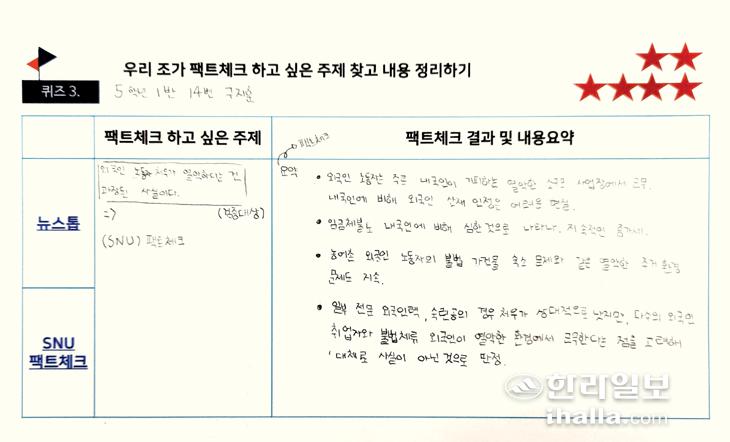 우리 조가 팩트체크 하고 싶은 주제 찾고 내용 정리하기
퀴즈 3.
5학년 1반 14번 국지훈
팩트체크 하고 싶은 주제
팩트체크 결과 및 내용요약
뉴스톱
SNU
팩트체크
외국인 노동자 처우가 열악하다는 건
과장된 사실이다.
=> (검증대상)
(SNU) 팩트체크
팩트체크
요약
• 외국인 노동자는 주로 내국인이 기피하는 열악한 소규모 사업장에서 근무.
내국인에 비해 외국인 산재 인정은 어려운 편임.
• 임금체불도 내국인에 비해 심한 것으로 나타나. 지속적인 증가세.
• 농어촌 외국인 노동자의 불법 가건물 숙소 문제와 같은 열악한 주거 환경
문제도 지속.
• 일부 전문 외국인력, 숙련공의 경우 처우가 상대적으로 낫지만, 다수의 외국인
취업자와 불법체류 외국인이 열악한 환경에서 근무한다는 점을 고려해
'대체로 사실이 아닌 것으로 판정.
한라일보
ihalla.com